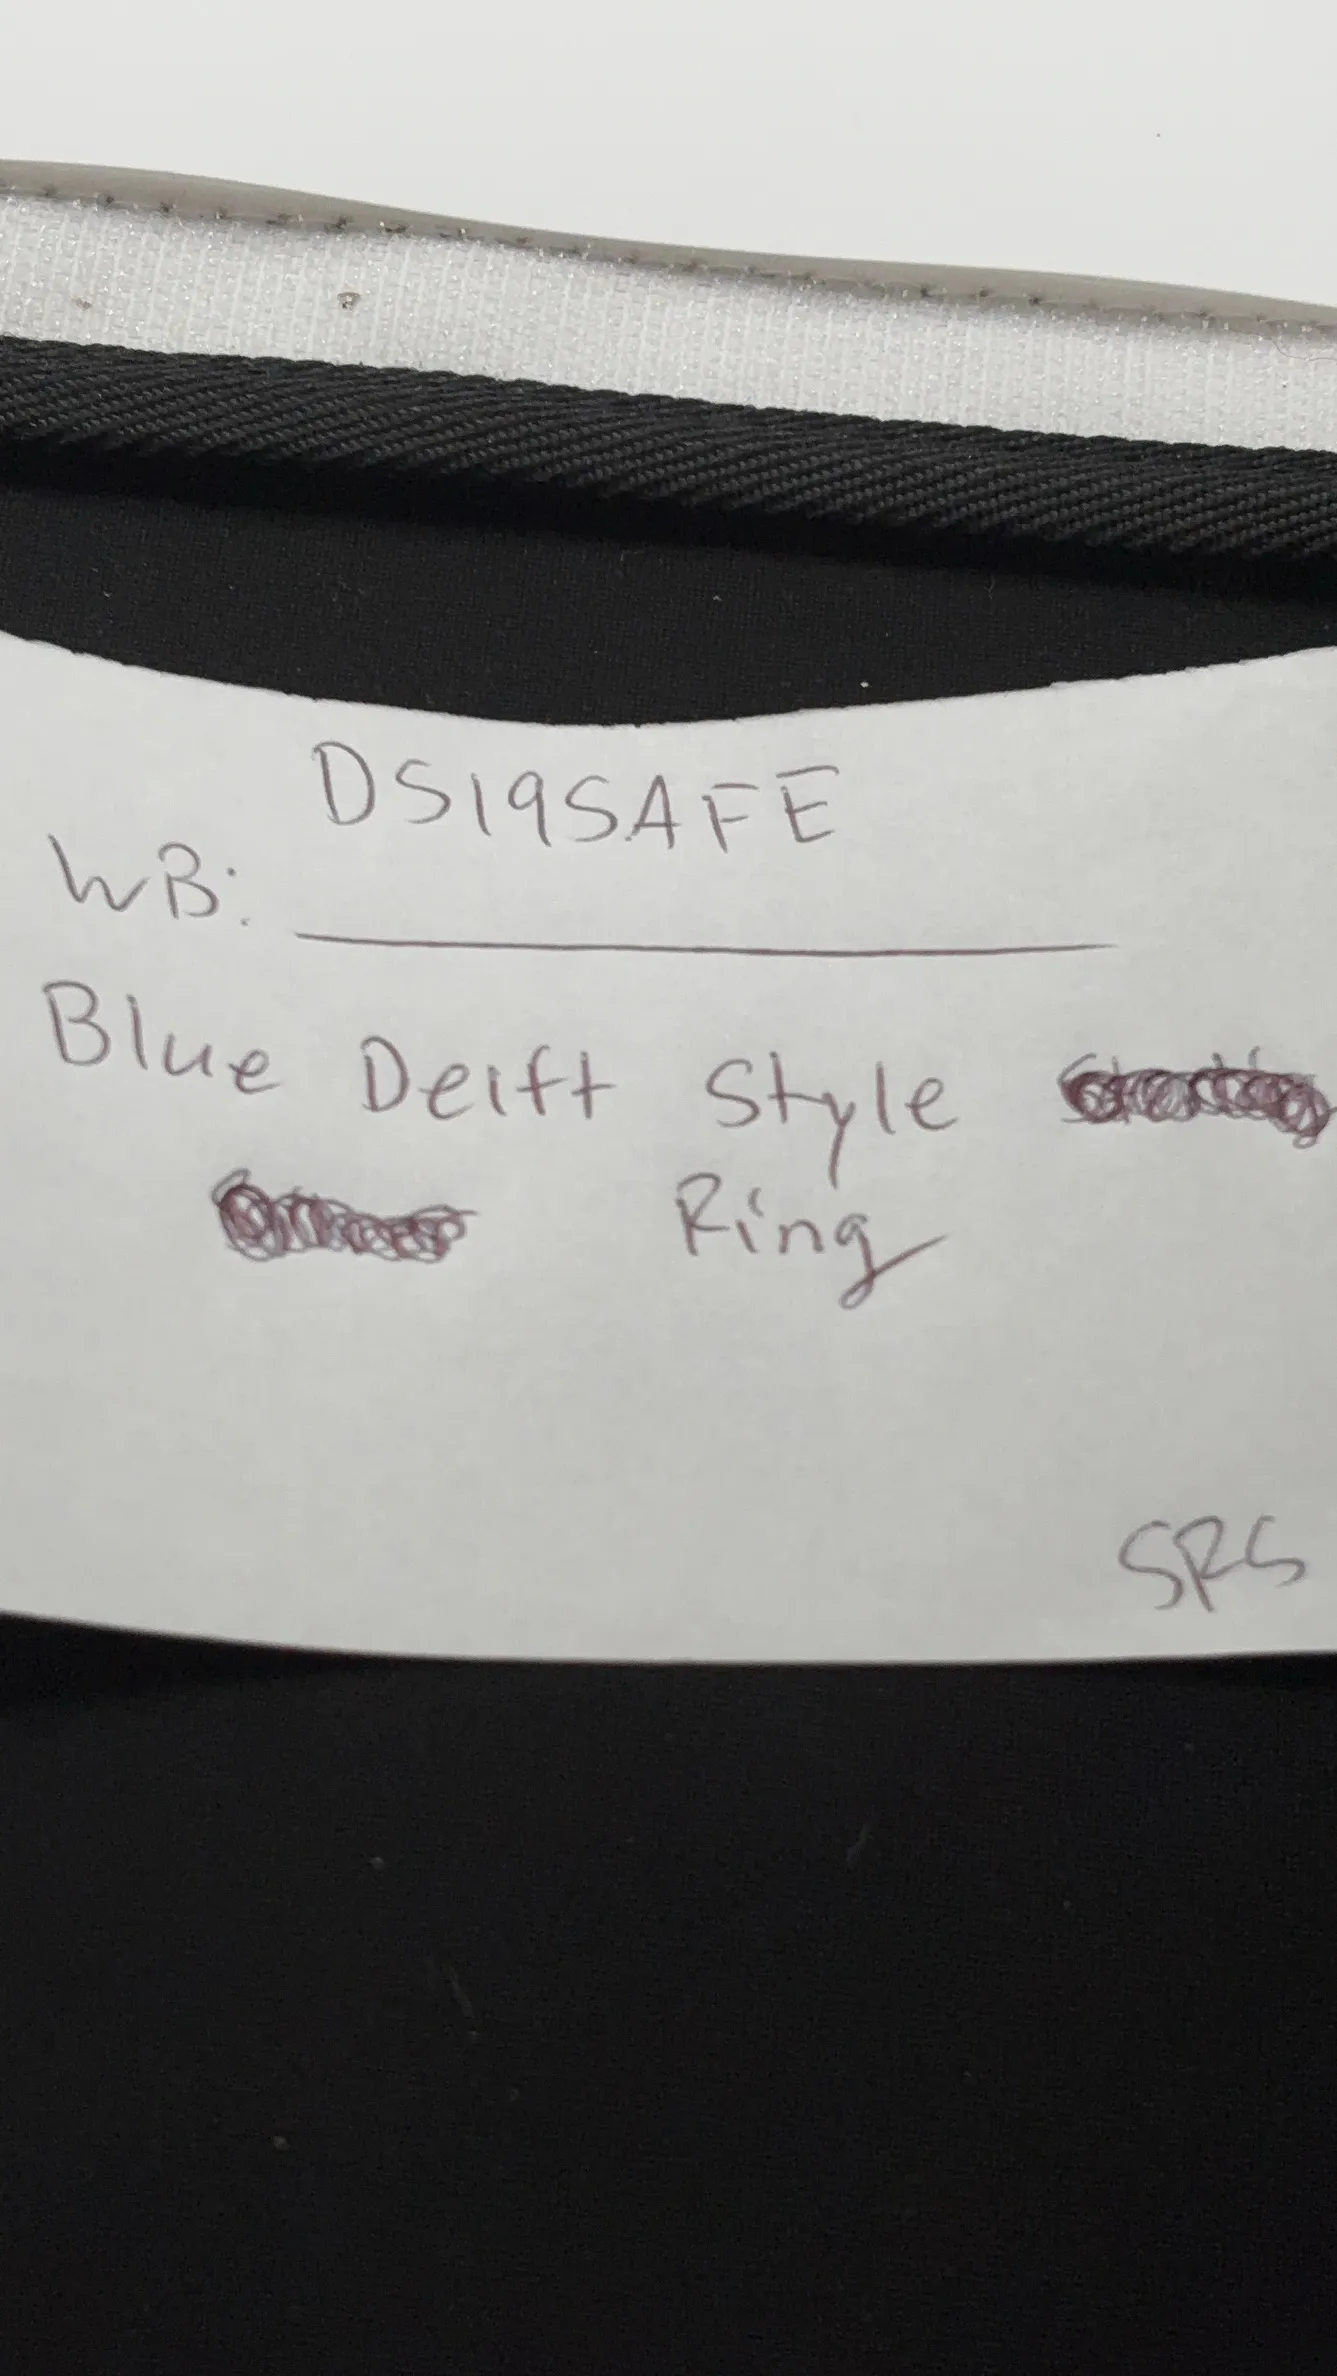 DS19SAFE
WB:
Blue Deift Style
Ring
SRS